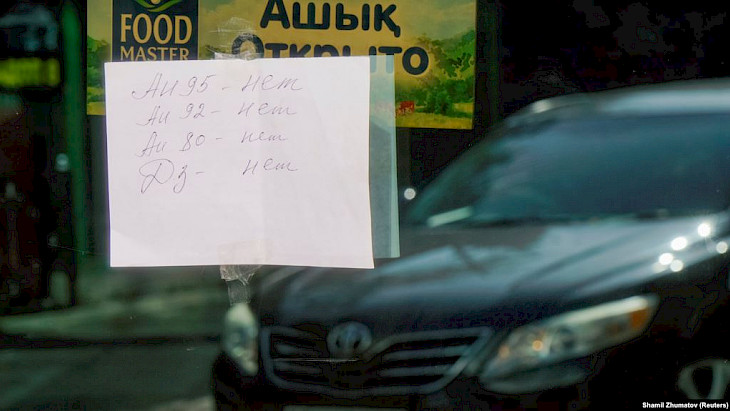 FOOD
MASTER
Ашық
Открыто
Аи 95 - нет
Аи 92 - нет
Аи 80 - нет
Дз - нет
Shamil Zhumatov (Reuters)